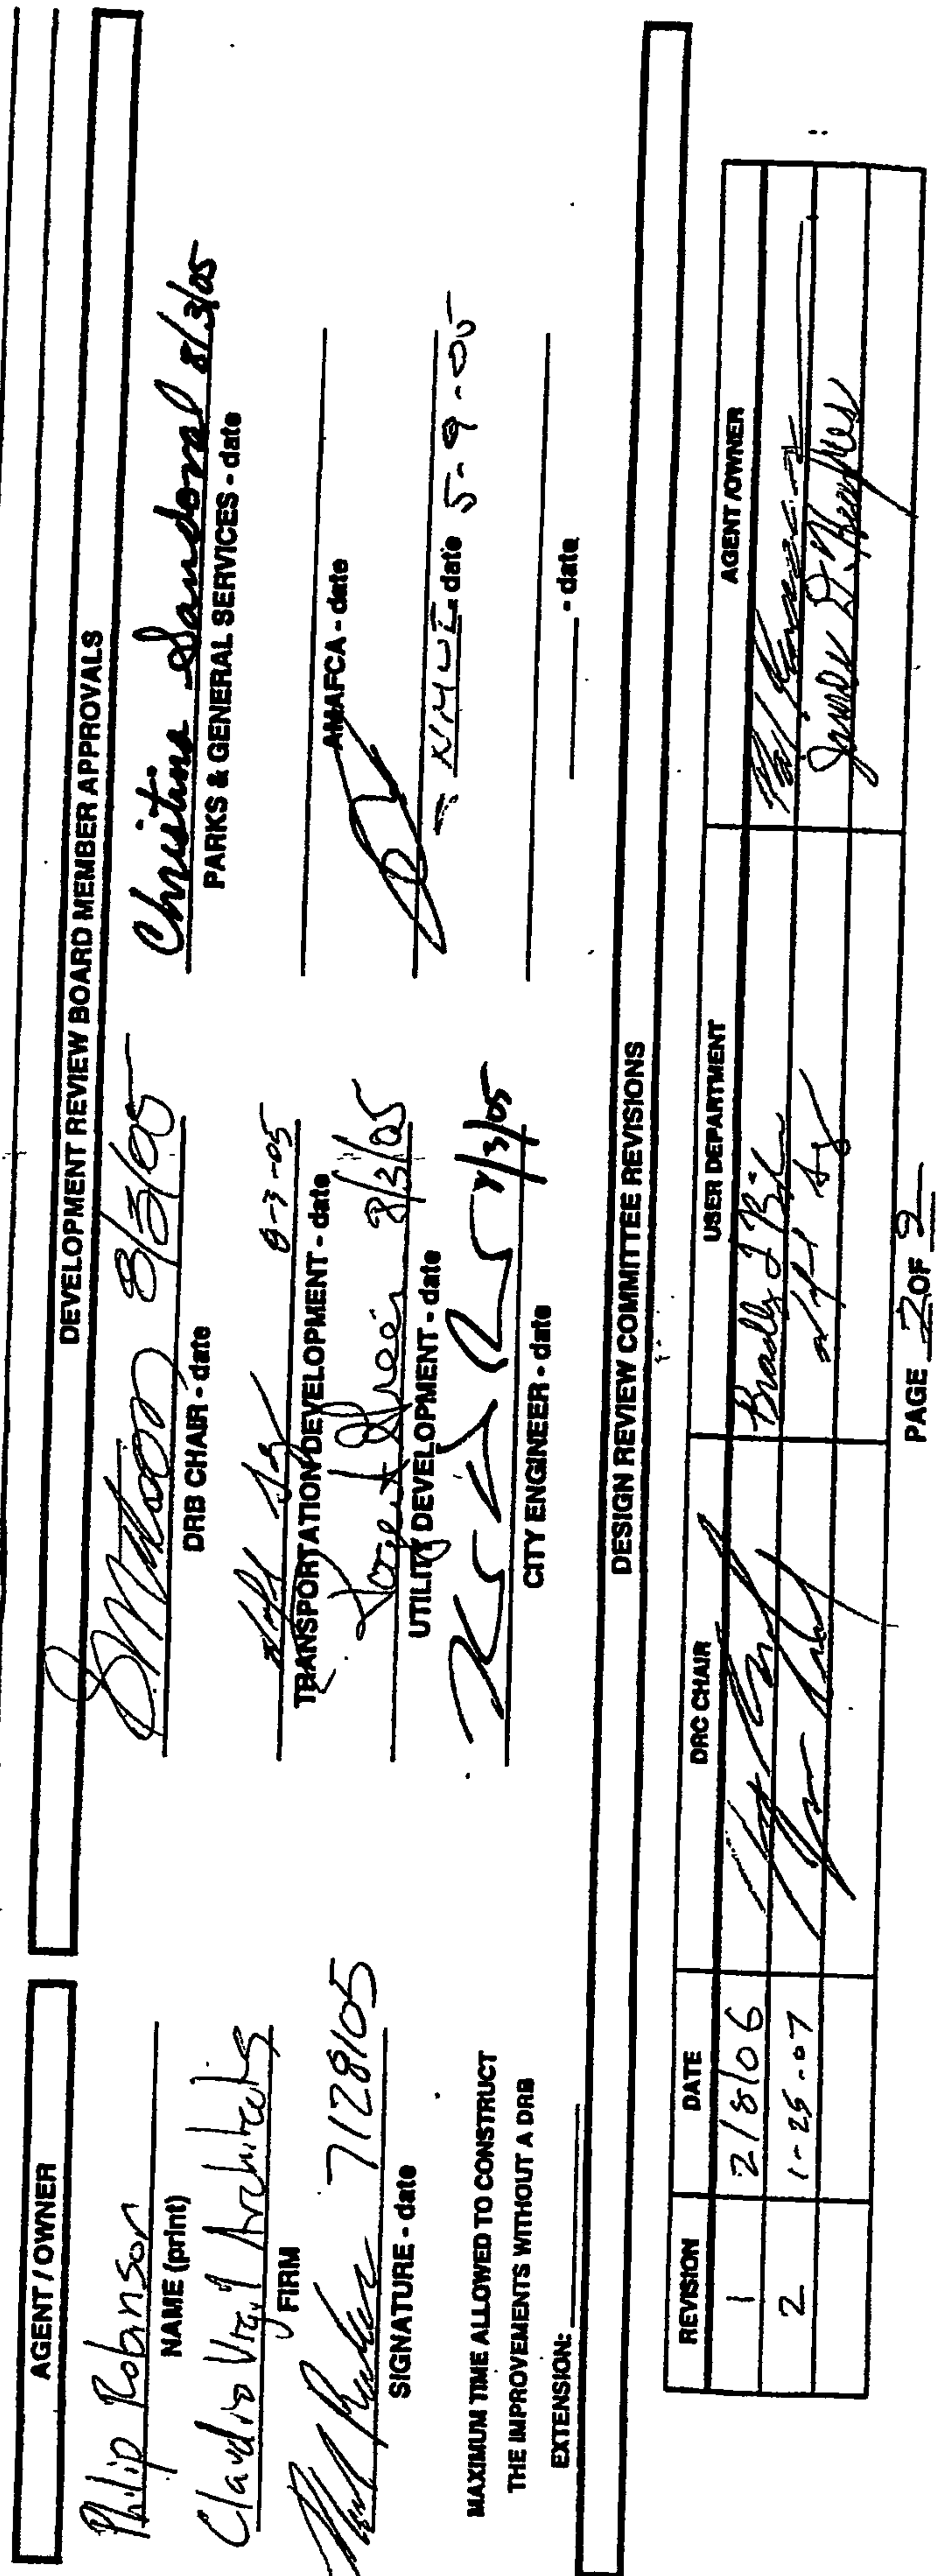 AGENT / OWNER
Philip Robinson
NAME (print)
Claudio Vigil Architects
FIRM
7/28/05
SIGNATURE - date
MAXIMUM TIME ALLOWED TO CONSTRUCT
THE IMPROVEMENTS WITHOUT A DRB
EXTENSION:
DEVELOPMENT REVIEW BOARD MEMBER APPROVALS
8/3/05
DRB CHAIR - date
8-3-05
TRANSPORTATION DEVELOPMENT - date
8/3/05
UTILITY DEVELOPMENT - date
8/3/05
CITY ENGINEER - date
Christina Sandoval 8/3/05
PARKS & GENERAL SERVICES - date
AMAFCA - date
- date 5-9-05
- date
DESIGN REVIEW COMMITTEE REVISIONS
REVISION DATE DRC CHAIR USER DEPARTMENT AGENT /OWNER
1 2/8/06
2 1-25-07 James D. Hughes
PAGE 2 OF 2